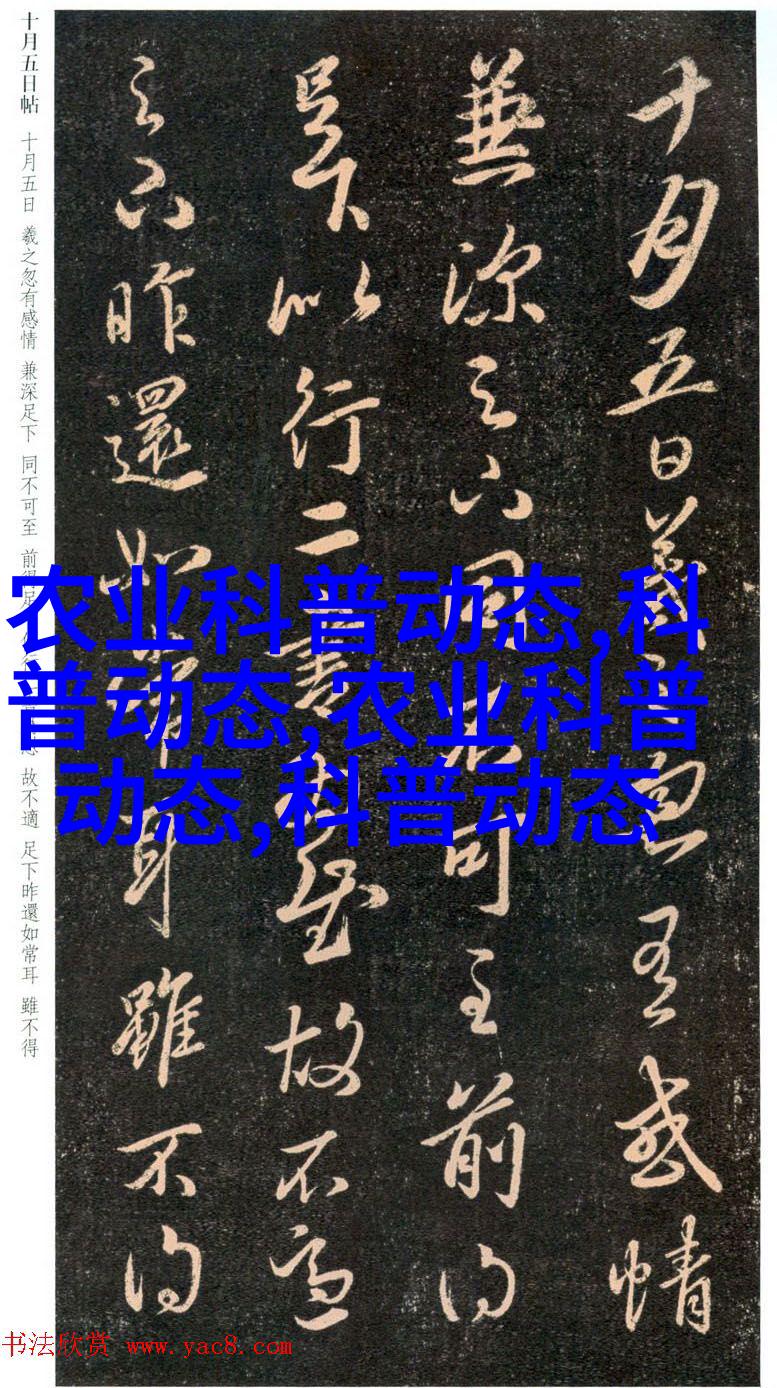 十月五日帖 十月五日 羲之忽有感情 兼深足下 同不可至 前得足
故不適 足下昨還如常耳 雖不得
十月五日羲之忽有感情
兼深足下同不可至前得
吴以行二書
故不適
足下昨還如常耳雖不得
农业科普动态,科
普动态,农业科普
动态,科普动态
书法欣赏 www.yac8.com